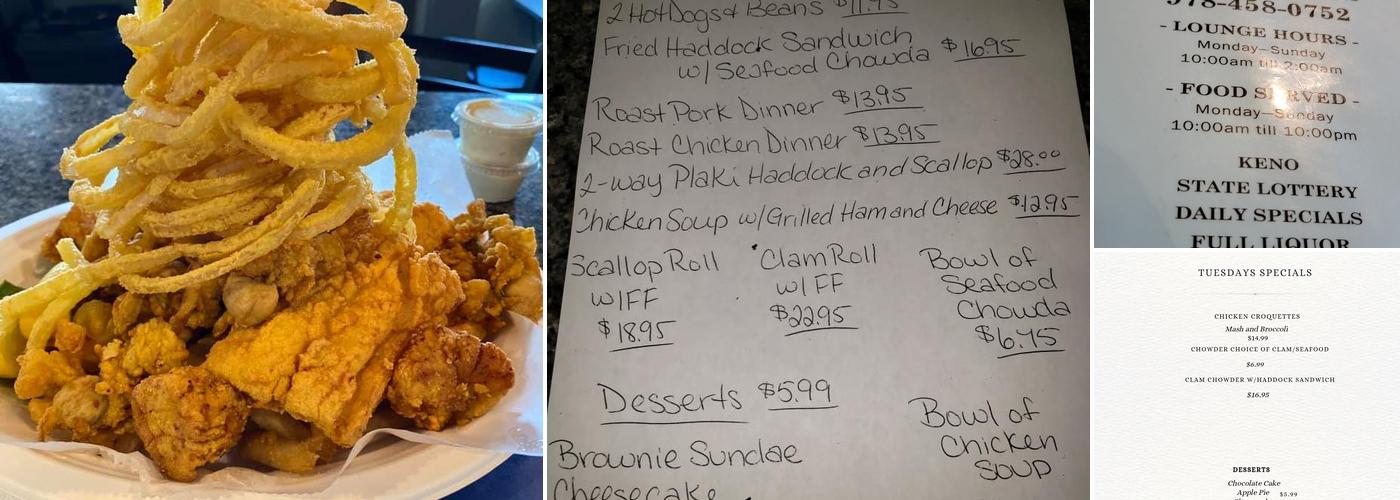 2 Hot Dogs & Beans $11.95
Fried Haddock Sandwich
w/ Seafood Chowda $16.95
Roast Pork Dinner $13.95
Roast Chicken Dinner $13.95
2-way Plaki Haddock and Scallop $28.00
Chicken Soup w/Grilled Ham and Cheese $12.95
Scallop Roll
w/FF
$18.95
Clam Roll
w/FF
$22.95
Bowl of
Seafood
Chowda
$6.75
Desserts $5.99
Brownie Sundae
Cheesecake
Bowl of
Chicken
SOUP
978-458-0752
- LOUNGE HOURS -
Monday–Sunday
10:00am till 2:00am
- FOOD SERVED -
Monday–Sunday
10:00am till 10:00pm
KENO
STATE LOTTERY
DAILY SPECIALS
FULL LIQUOR
TUESDAYS SPECIALS
CHICKEN CROQUETTES
Mash and Broccoli
$14.99
CHOWDER CHOICE OF CLAM/SEAFOOD
$6.99
CLAM CHOWDER W/HADDOCK SANDWICH
$16.95
DESSERTS
Chocolate Cake
Apple Pie $5.99